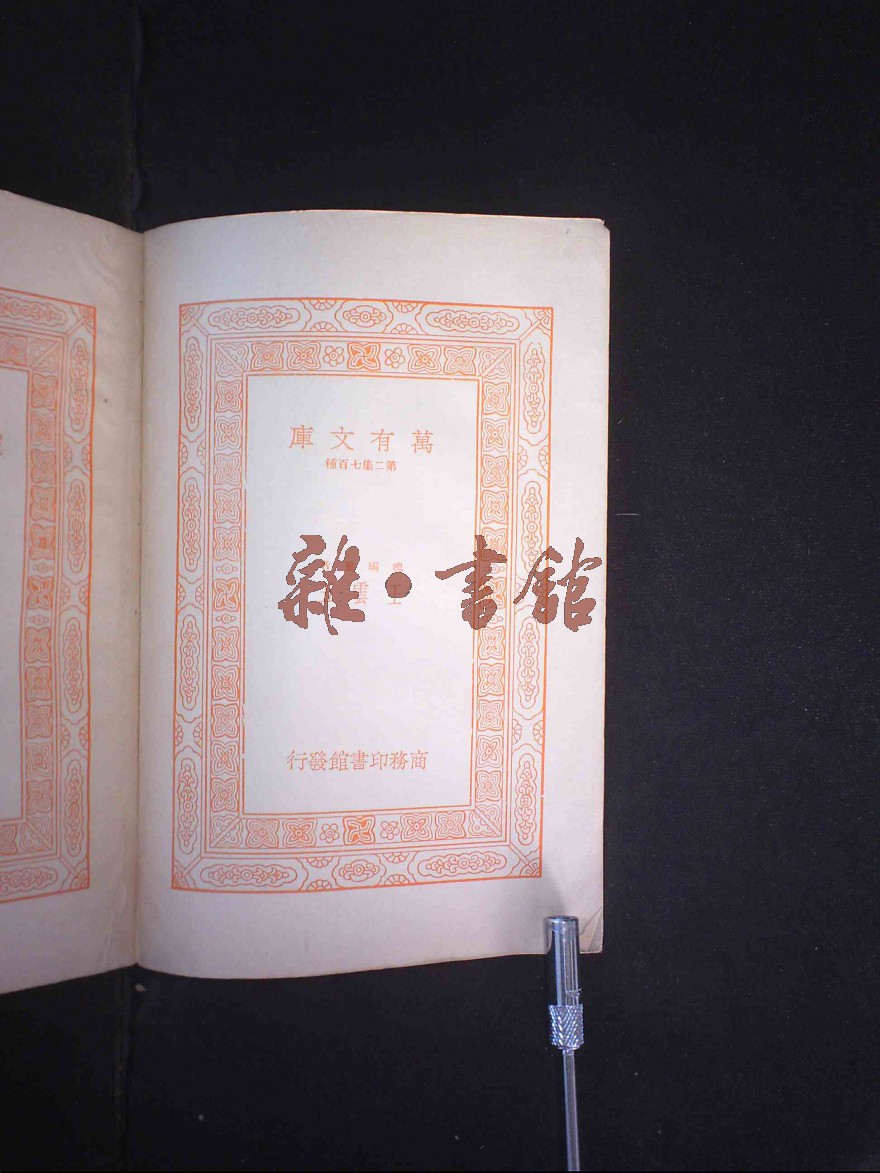 萬有文庫
第二集七百種
編
王雲
商務印書館發行
雜·書館